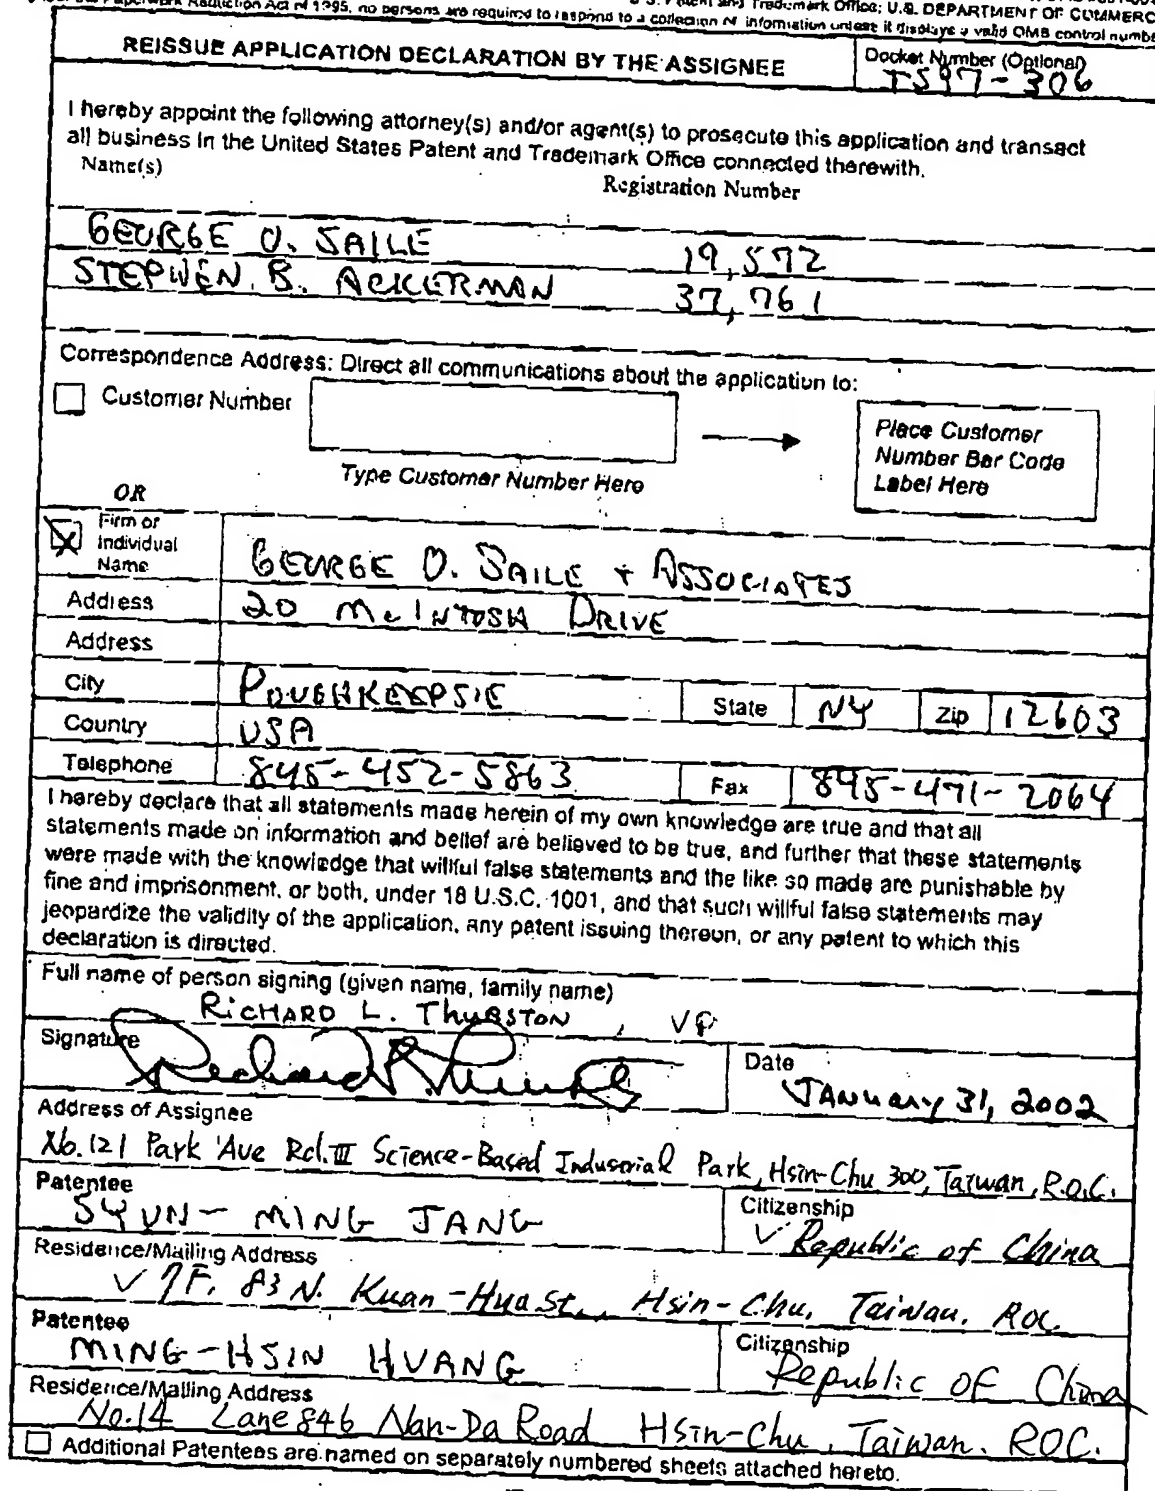 Reduction Act of 1995, no persons are required to respond to a collection of information unless it displays a valid OMB control number
Patent and Trademark Office; U.S. DEPARTMENT OF COMMERC
REISSUE APPLICATION DECLARATION BY THE ASSIGNEE
Docket Number (Optional)
TS97-306
I hereby appoint the following attorney(s) and/or agent(s) to prosecute this application and transact
all business in the United States Patent and Trademark Office connected therewith.
Name(s)
Registration Number
GEORGE O. SAILE 19,572
STEPHEN. B. ACKERMAN 37,761
Correspondence Address: Direct all communications about the application to:
Customer Number
Type Customer Number Here
Place Customer
Number Bar Code
Label Here
OR
Firm or
Individual
Name
GEORGE O. SAILE + ASSOCIATES
Address 20 McINTOSH DRIVE
Address
City POUGHKEEPSIE State NY Zip 12603
Country USA
Telephone 845-452-5863 Fax 845-471-2064
I hereby declare that all statements made herein of my own knowledge are true and that all
statements made on information and belief are believed to be true, and further that these statements
were made with the knowledge that willful false statements and the like so made are punishable by
fine and imprisonment, or both, under 18 U.S.C. 1001, and that such willful false statements may
jeopardize the validity of the application, any patent issuing thereon, or any patent to which this
declaration is directed.
Full name of person signing (given name, family name)
RICHARD L. THURSTON, VP
Signature
Date
JANUARY 31, 2002
Address of Assignee
No. 121 Park Ave Rd. III Science-Based Industrial Park, Hsin-Chu 300, Taiwan, R.O.C.
Patentee
SYUN-MING JANG
Citizenship
Republic of China
Residence/Mailing Address
7F, 83 N. Kuan-Hua St., Hsin-Chu, Taiwan, ROC
Patentee
MING-HSIN HUANG
Citizenship
Republic of China
Residence/Mailing Address
No.14 Lane 846 Nan-Da Road Hsin-Chu, Taiwan. ROC.
Additional Patentees are named on separately numbered sheets attached hereto.